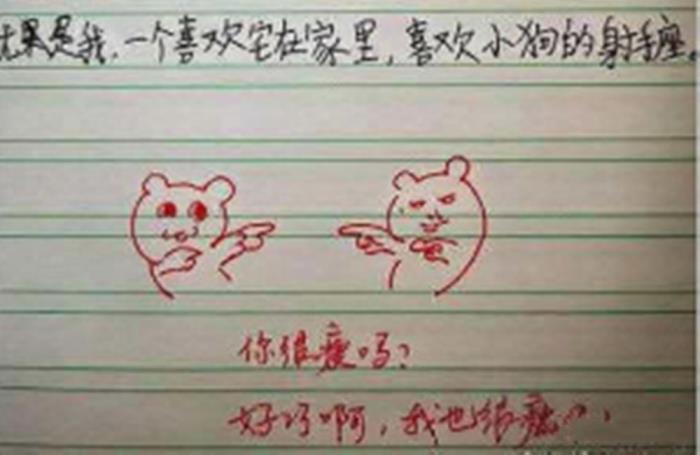 尤果是我，一个喜欢宅在家里，喜欢小狗的射手座。
你很瘦吗？
好巧啊，我也很